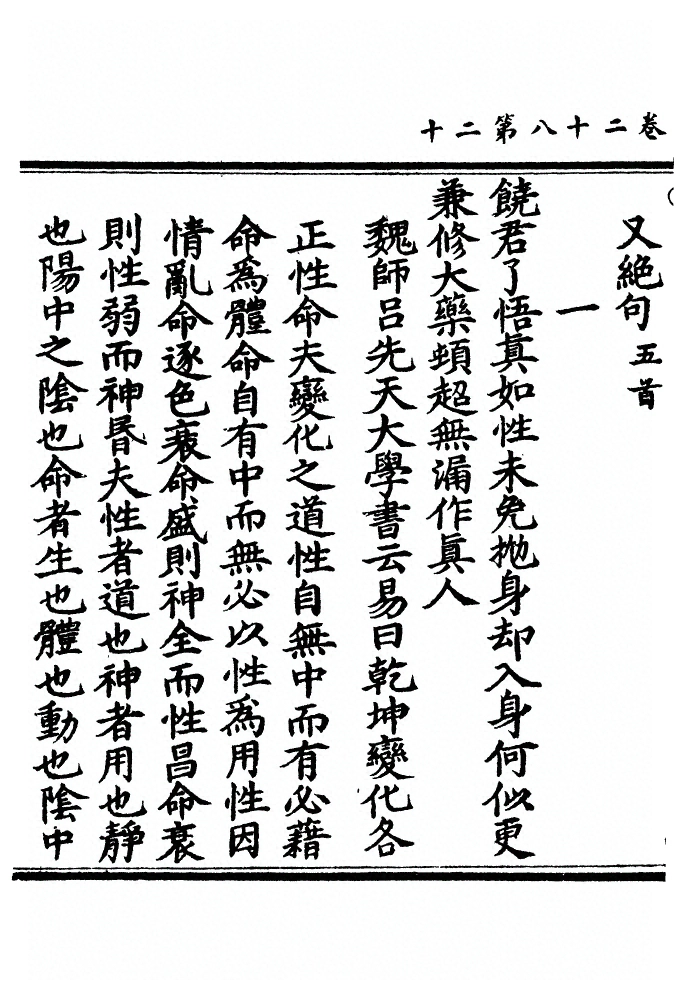 卷二十八第二十
又絕句五首
一
饒君了悟眞如性未免拋身却入身何似更
兼修大藥頓超無漏作眞人
魏師吕先天大學書云易曰乾坤變化各
正性命夫變化之道性自無中而有必藉
命爲體命自有中而無必以性爲用性因
情亂命逐色衰命盛則神全而性昌命衰
則性弱而神昬夫性者道也神者用也靜
也陽中之陰也命者生也體也動也陰中